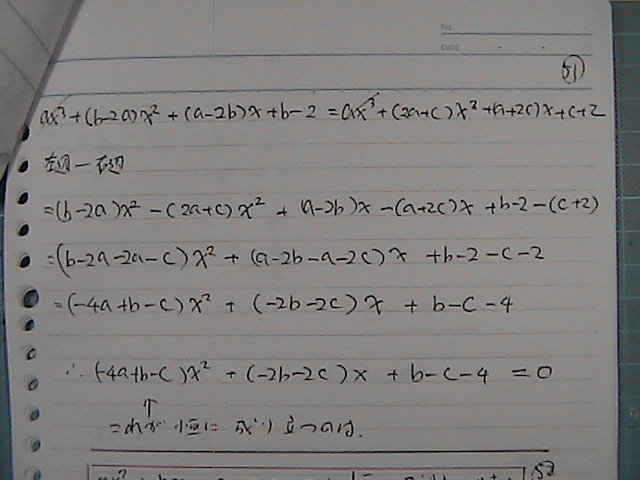 NO.
DATE
51
ax³+(b-2a)x²+(a-2b)x+b-2=ax³+(2a+c)x²+(a+2c)x+c+2
左辺-右辺
=(b-2a)x²-(2a+c)x²+(a-2b)x-(a+2c)x+b-2-(c+2)
=(b-2a-2a-c)x²+(a-2b-a-2c)x+b-2-c-2
=(-4a+b-c)x²+(-2b-2c)x+b-c-4
∴(-4a+b-c)x²+(-2b-2c)x+b-c-4=0
↑
これが恒に成り立つのは.